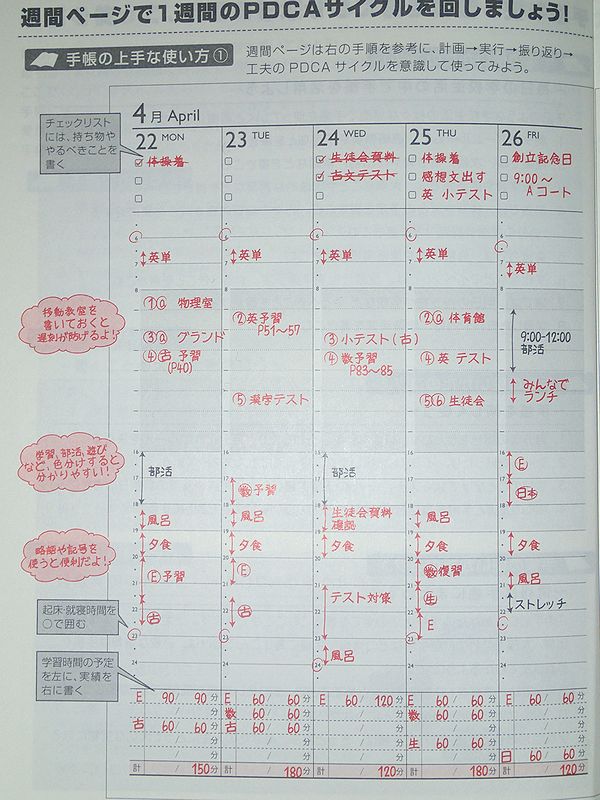 週間ページで1週間のPDCAサイクルを回しましょう!
手帳の上手な使い方①
週間ページは右の手順を参考に、計画→実行→振り返り→
工夫のPDCAサイクルを意識して使ってみよう。
チェックリスト
には、持ち物や
やるべきことを
書く
4月 April
22 MON
体操着
23 TUE
24 WED
生徒会資料
古文テスト
25 THU
体操着
感想文出す
英 小テスト
26 FRI
創立記念日
9:00〜
Aコート
移動教室を
書いておくと
遅刻が防げるよ!
学習、部活、遊び
など、色分けすると
分かりやすい!
略語や記号を
使うと便利だよ!
起床・就寝時間を
○で囲む
学習時間の予定
を左に、実績を
右に書く
6
英単
7
8
①@ 物理室
③@ グランド
④古 予習
(P40)
16
部活
17
18
風呂
19
夕食
20
E予習
21
22
古
23
24
6
英単
7
8
②英予習
P51〜57
⑤漢字テスト
16
17
数予習
18
風呂
19
夕食
20
E
21
22
古
23
24
6
英単
7
8
③小テスト(古)
④数予習
P83〜85
15
部活
17
18
生徒会資料
確認
19
夕食
20
21
テスト対策
22
23
風呂
24
6
英単
7
8
②@ 体育館
④英 テスト
⑤⑥生徒会
16
17
18
風呂
19
夕食
20
数復習
21
生
22
E
23
24
英単
7
8
9:00-12:00
部活
みんなで
ランチ
16
E
17
日本
18
19
夕食
20
21
風呂
22
ストレッチ
23
24
E 90/90分
/ 分
古 60/60分
/ 分
/ 分
計 / 150分
E 60/60分
数 60/60分
古 60/60分
/ 分
/ 分
計 / 180分
E 60/120分
/ 分
/ 分
/ 分
/ 分
計 / 120分
E 60/60分
数 60/60分
/ 分
生 60/60分
/ 分
計 / 180分
E 60/60分
/ 分
/ 分
/ 分
日 60/60分
計 / 120分